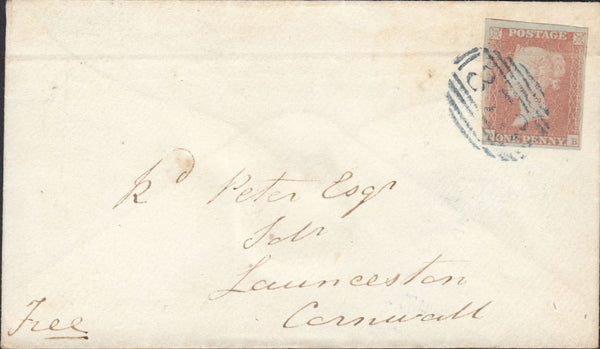 POSTAGE
ONE PENNY B
Rd Peter Esqr
Solr
Launceston
Cornwall
Free